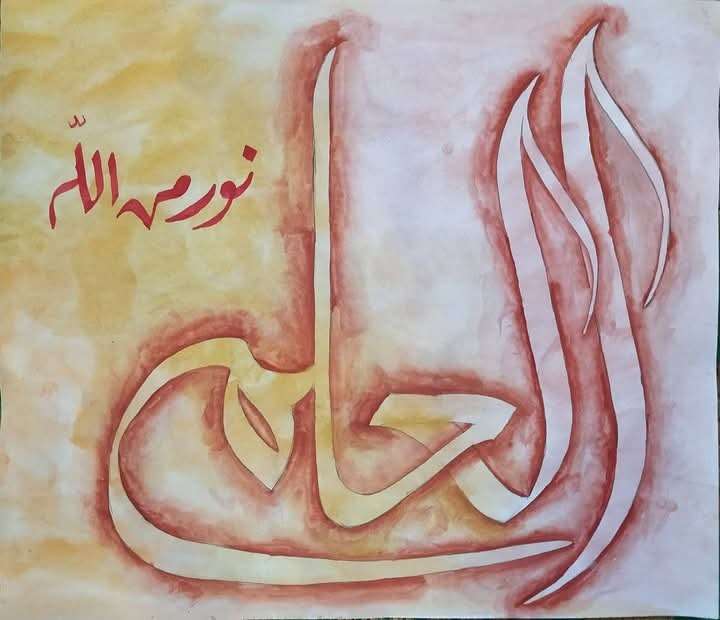 الحلم
نور من اللّه